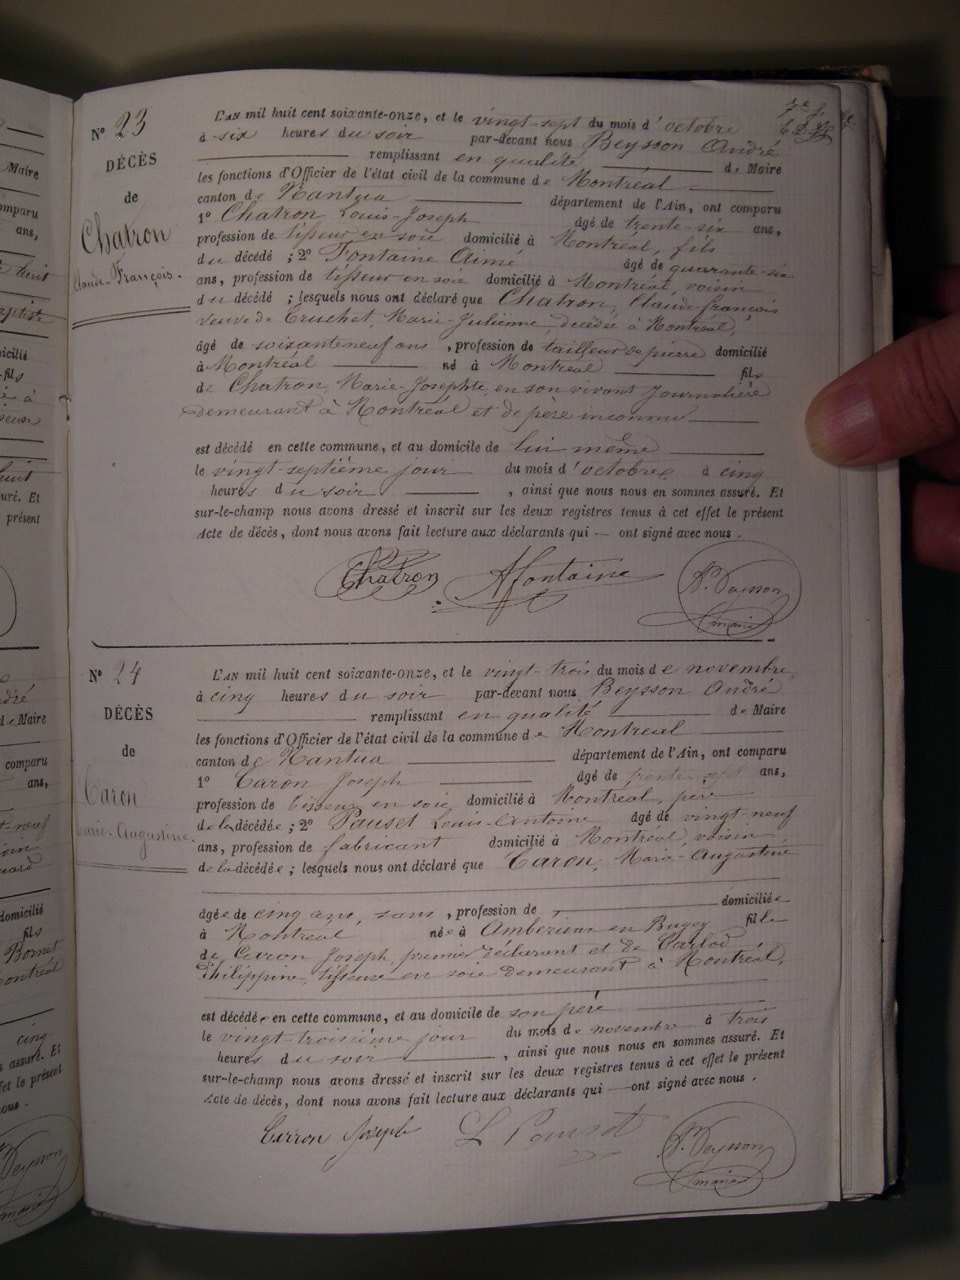 N° 23
DÉCÈS
de
Chatron
Claude-François.
L'AN mil huit cent soixante-onze, et le vingt-sept du mois d'octobre
à six heures du soir par-devant nous Beysson André
remplissant en qualité de Maire
les fonctions d'Officier de l'état civil de la commune de Montréal
canton de Nantua département de l'Ain, ont comparu
1° Chatron Louis-Joseph âgé de trente-six ans,
profession de tisseur en soie domicilié à Montréal, fils
du décédé ; 2° Fontaine Aimé âgé de quarante-six
ans, profession de tisseur en soie domicilié à Montréal, voisin
du décédé ; lesquels nous ont déclaré que Chatron, Claude-françois
veuve de Truchet, Marie-Julienne, décédée à Montréal,
âgé de soixante neuf ans , profession de tailleur de pierre domicilié
à Montréal né à Montréal fils
de Chatron, Marie-Josephte, en son vivant journalière
demeurant à Montréal et de père inconnu
est décédé en cette commune, et au domicile de lui même
le vingt septième jour du mois d'octobre à cinq
heures du soir , ainsi que nous nous en sommes assuré. Et
sur-le-champ nous avons dressé et inscrit sur les deux registres tenus à cet effet le présent
Acte de décès, dont nous avons fait lecture aux déclarants qui ont signé avec nous .
Chatron AFontaine A. Beysson
maire
N° 24
DÉCÈS
de
Caron
Marie-Augustine.
L'AN mil huit cent soixante-onze, et le vingt-trois du mois de novembre,
à cinq heures du soir par-devant nous Beysson André
remplissant en qualité de Maire
les fonctions d'Officier de l'état civil de la commune de Montréal
canton de Nantua département de l'Ain, ont comparu
1° Caron Joseph âgé de trente sept ans,
profession de tisseur en soie, domicilié à Montréal, père
de la décédée ; 2° Pauset Louis-Antoine âgé de vingt-neuf
ans, profession de fabricant domicilié à Montréal, voisin
de la décédée ; lesquels nous ont déclaré que Caron, Marie-Augustine
âgée de cinq ans, sans , profession de domiciliée
à Montréal née à Ambérieu en Bugey fille
de Caron Joseph, premier déclarant et de
Philippine, tisseuse en soie demeurant à Montréal,
est décédée en cette commune, et au domicile de son père
le vingt-troisième jour du mois de novembre à trois
heures du soir , ainsi que nous nous en sommes assuré. Et
sur-le-champ nous avons dressé et inscrit sur les deux registres tenus à cet effet le présent
Acte de décès, dont nous avons fait lecture aux déclarants qui ont signé avec nous .
Carron Joseph L Pauset A. Beysson
maire